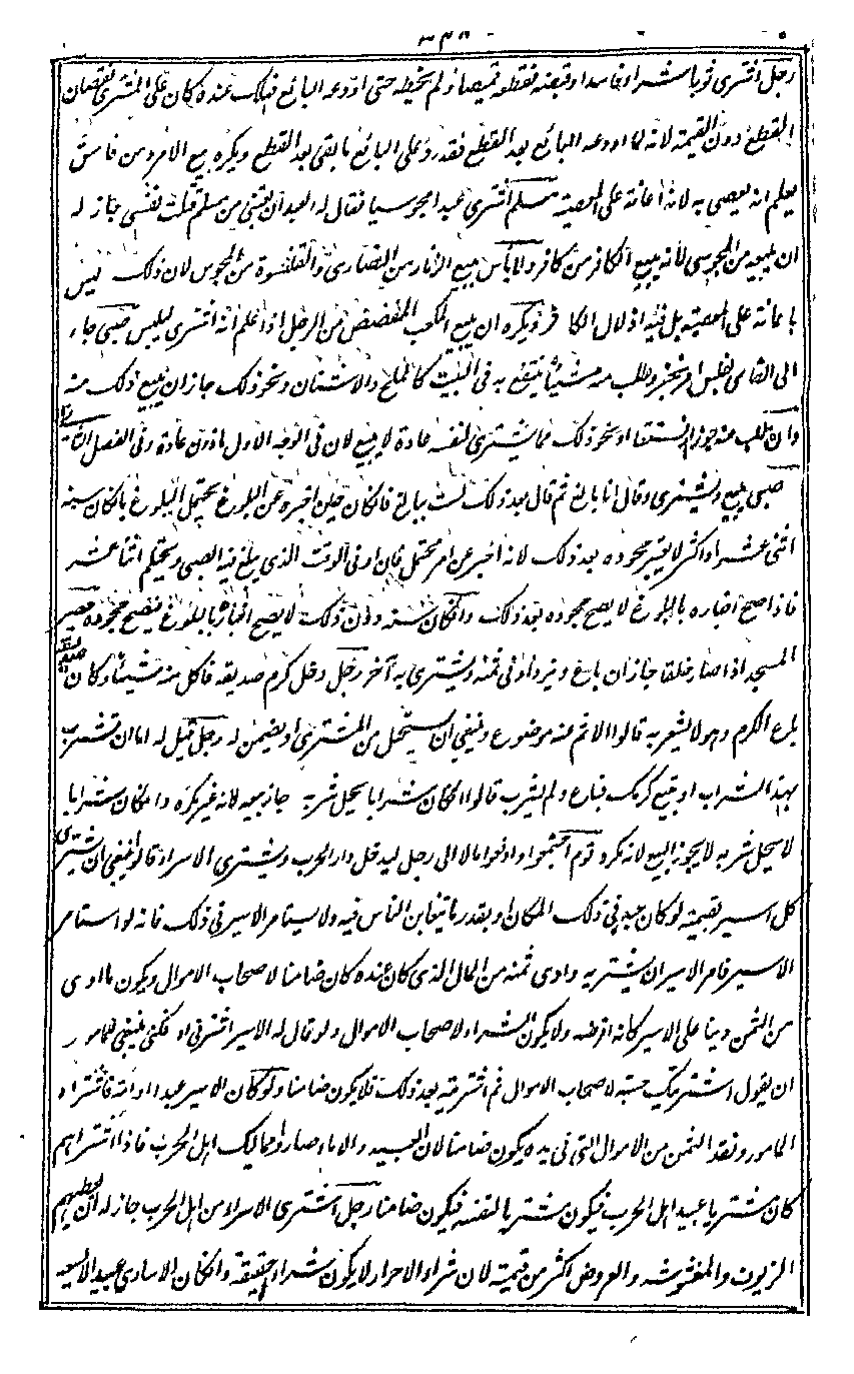 ٣٤٥
رجل اشترى ثوبا شراء فاسدا وقبضه فقطعه قميصا ولم يخطه حتى اودعه البائع فهلك عنده كان على المشترى نقصان
القطع دون القيمة لانه لما اودعه البائع بعد القطع فقد رد على البائع ما بقى بعد القطع ويكره بيع الامرد من فاسق
يعلم انه يعصى به لانه اعانة على المعصية مسلم اشترى عبدا مجوسيا فقال له العبد ان بعتنى من مسلم قتلت نفسى جاز له
ان يبيعه من المجوسى لانه يبيع الكافر من كافر ولا بأس ببيع الزنار من النصارى والقلنسوة من المجوس لان ذلك ليس
باعانة على المعصية بل فيه اذلال الكافر ويكره ان يبيع المكعب المفضض من الرجل اذا علم انه اشترى ليلبس صبى جاء
الى القامى بفلس او بخبز وطلب منه شيئا ينتفع به فى البيت كالملح والاشنان ونحو ذلك جاز ان يبيع ذلك منه
وان طلب منه جوزا او فستقا او نحو ذلك مما يشترى لنفسه عادة لا يبيع لان فى الوجه الاول ماذون عادة وفى الفصل الثانى لا
صبى يبيع ويشترى وقال انا بالغ ثم قال بعد ذلك لست ببالغ فان كان حين اخبره عن البلوغ يحتمل البلوغ بان كان سنه
اثنى عشر او اكثر لا يعتبر جحوده بعد ذلك لانه اخبر عن امر محتمل فان ادنى الوقت الذى يبلغ فيه الصبى ويحتلم اثنا عشر
فاذا صح اخباره بالبلوغ لا يصح جحوده بعد ذلك وان كان سنه دون ذلك لا يصح اخباره بالبلوغ فيصح جحوده حصير
المسجد اذا صار خلقا جاز ان يباع ويزداد فى ثمنه ويشترى به آخر رجل دخل كرم صديقه فاكل منه شيئا وكان صديقه
باع الكرم وهو لا يشعر به قالوا الاثم عنه موضوع وينبغى ان يستحل من المشترى او يضمن له رجل قيل له اما ان تشرب
بهذا الشراب او تبيع كرمك فباع ولم يشرب قالوا ان كان شرابا يحل شربه جاز بيعه لانه غير مكره وان كان شرابا
لا يحل شربه لا يجوز البيع لانه مكره قوم اجتمعوا ودفعوا مالا الى رجل ليدخل دار الحرب ويشترى الاسراء قالوا ينبغى ان يشترى
كل اسير بقيمته لو كان عبدا فى ذلك المكان او بقدر ما يتغابن الناس فيه ولا يستامر الاسير فى ذلك فانه لو استامر
الاسير فامر الاسير ان يشتريه وادى ثمنه من المال الذى كان عنده كان ضامنا لاصحاب الاموال ويكون ما ادى
من الثمن دينا على الاسير كانه اقرضه ولا يكون الشراء لاصحاب الاموال ولو قال له الاسير اشترنى او فكنى ينبغى للمامور
ان يقول اشتريتك حسبة لاصحاب الاموال ثم اشتريته بعد ذلك فلا يكون ضامنا ولو كان الاسير عبدا او امة فاشتراه
المامور ونقد الثمن من الاموال التى فى يده يكون ضامنا لان العبيد والاماء صاروا مماليك اهل الحرب فاذا اشتراهم
كان مشتريا عبيد اهل الحرب فيكون مشتريا لنفسه فيكون ضامنا رجل اشترى الاسراء من اهل الحرب جاز له ان يعطيهم
الزيوف والمغشوشة والعروض اكثر من قيمته لان شراء الاحرار لا يكون شراء حقيقة وان كان الاسارى عبيدا لا يسعه